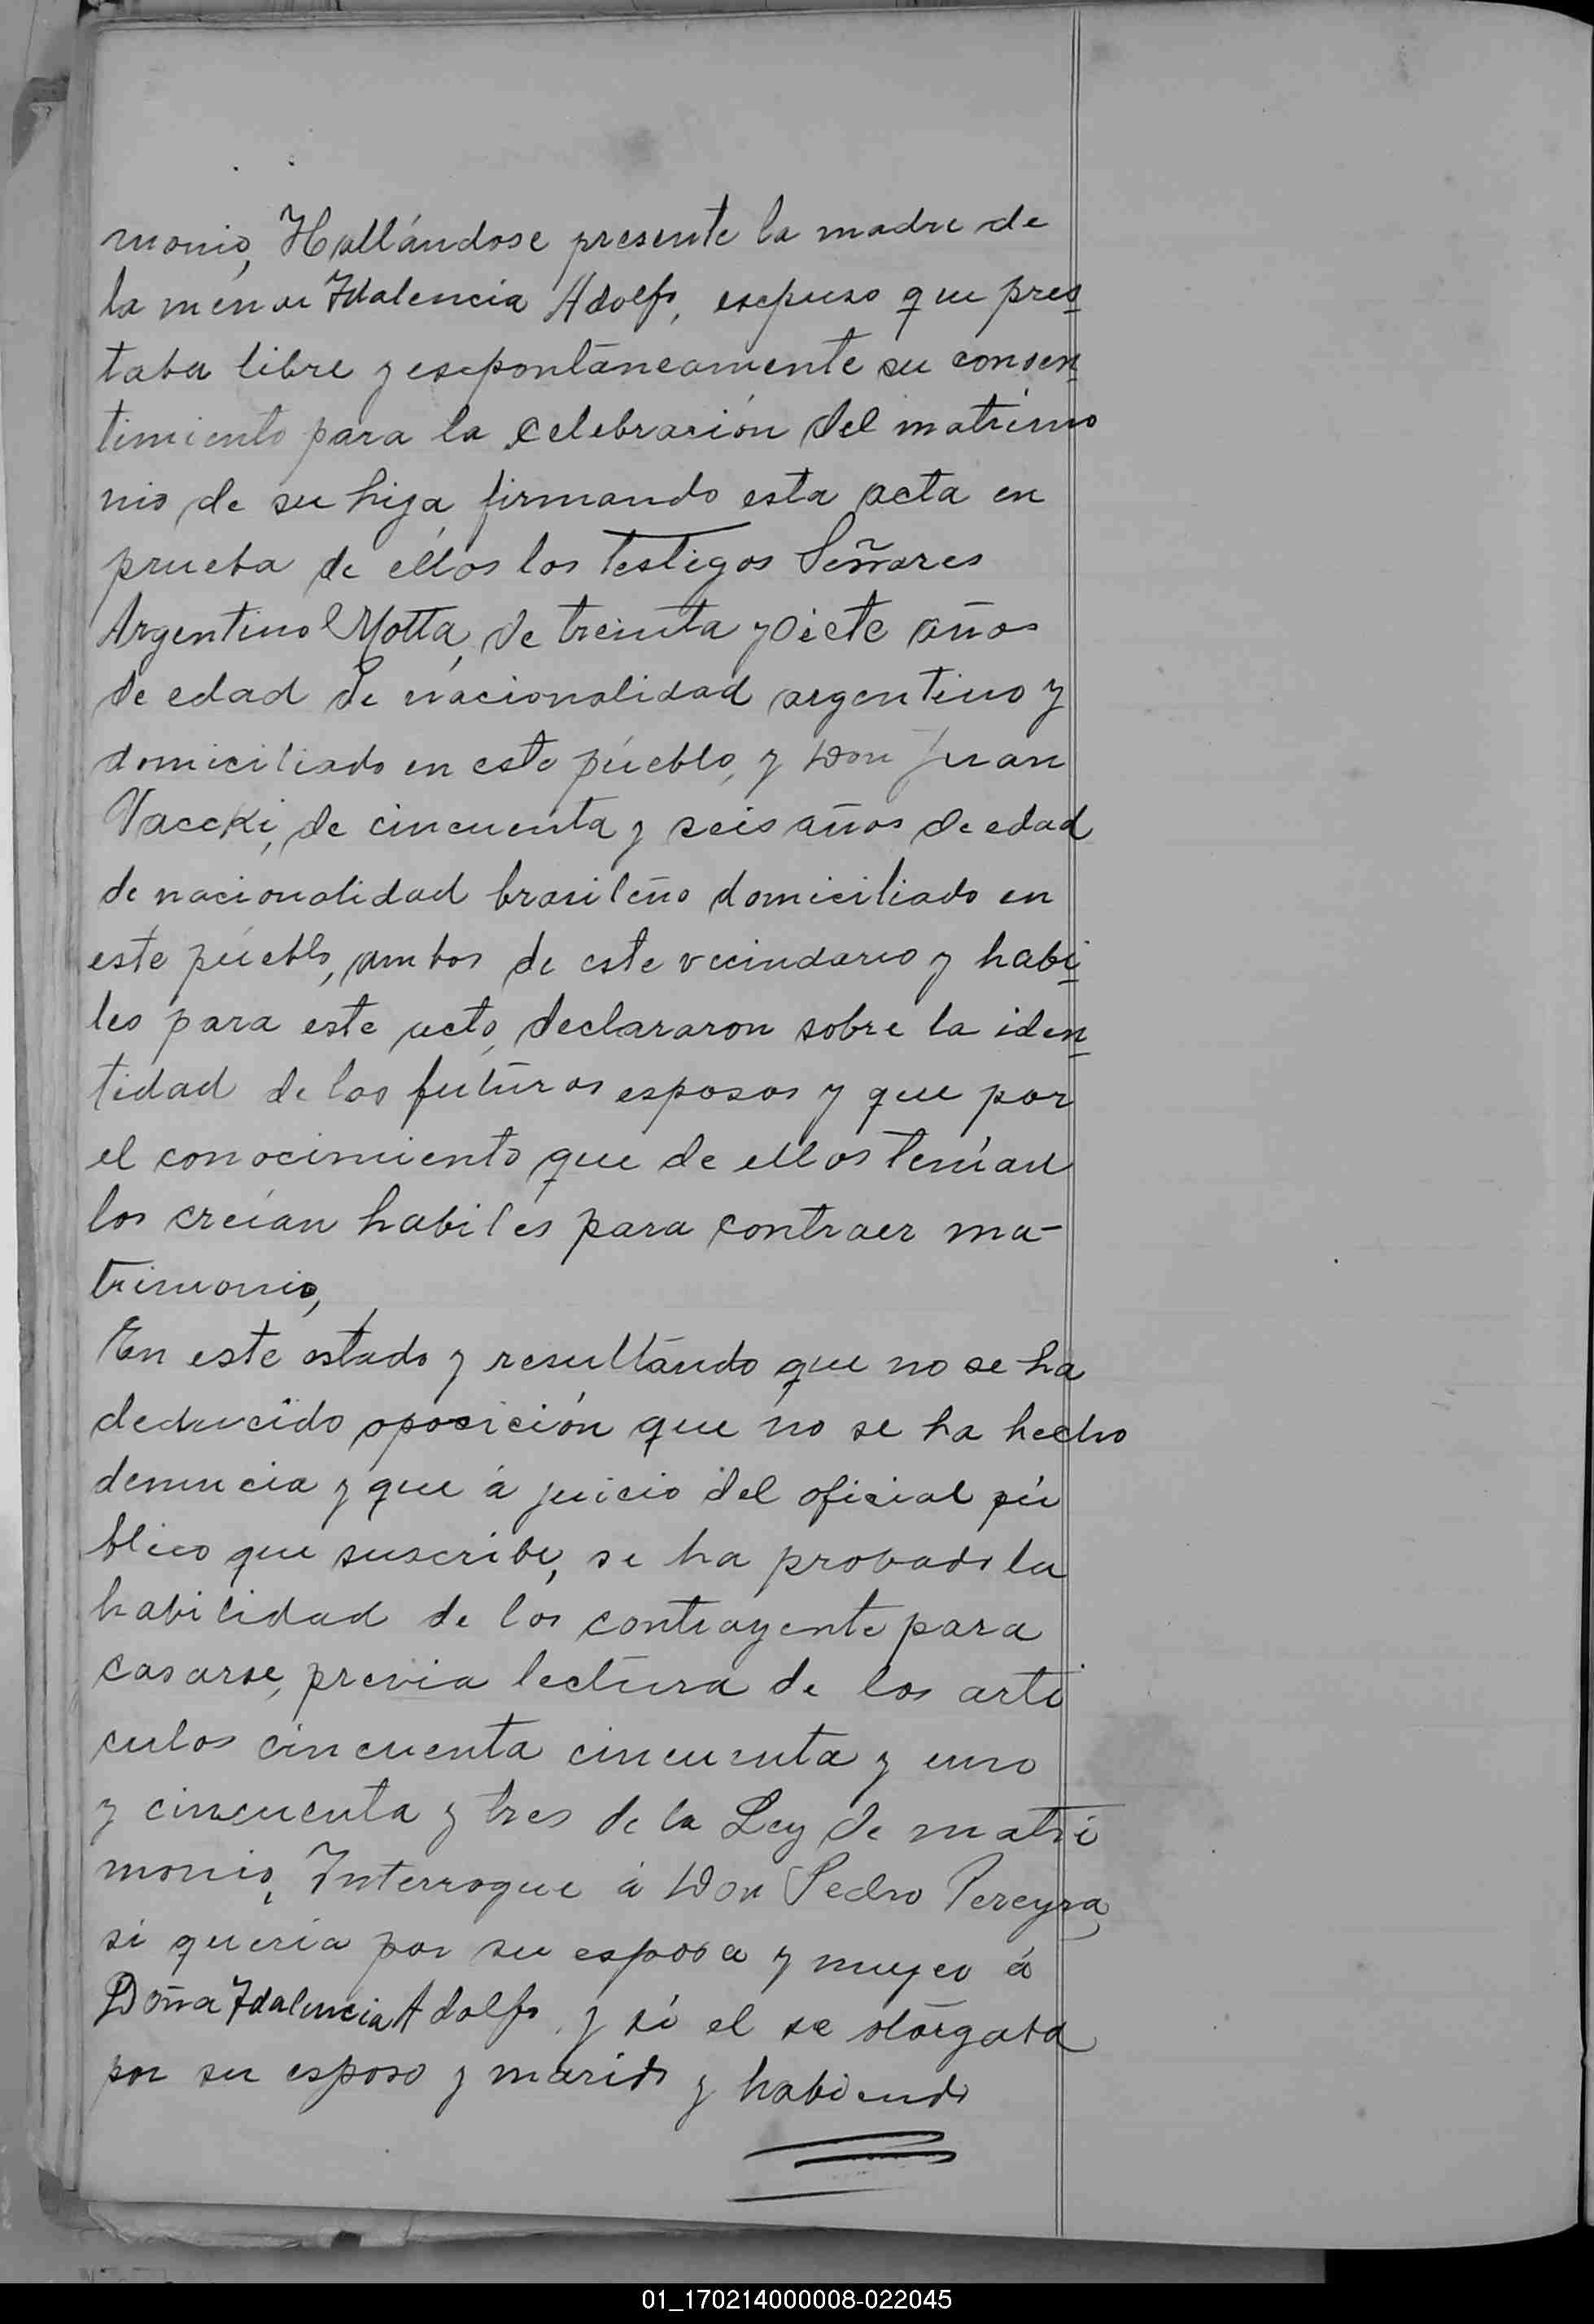 monio, Hallándose presente la madre de
la menor Idalencia Adolfo, espuso que pres
taba libre y espontáneamente su consen
timiento para la celebración del matrimo
nio de su hija, firmando esta acta en
prueba de ellos los testigos Señores
Argentino Motta, de treinta y siete años
de edad de nacionalidad argentino y
domiciliado en este pueblo, y Don Juan
Vaccki, de cincuenta y seis años de edad
de nacionalidad brasileño domiciliado en
este pueblo, ambos de este vecindario y habi
les para este acto, declararon sobre la iden
tidad de los futuros esposos y que por
el conocimiento que de ellos tenían
los creían habiles para contraer ma-
trimonio,
En este estado y resultando que no se ha
deducido oposición que no se ha hecho
denuncia y que á juicio del oficial pú
blico que suscribe, se ha probado la
habilidad de los contrayente para
casarse, previa lectura de los arti
culos cincuenta cincuenta y uno
y cincuenta y tres de la Ley de matri
monio, Interrogue á Don Pedro Pereyra,
si queria por su esposa y mujer á
Doña Idalencia Adolfo, y si el se otorgaba
por su esposo y marido y habiendo
01_170214000008-022045